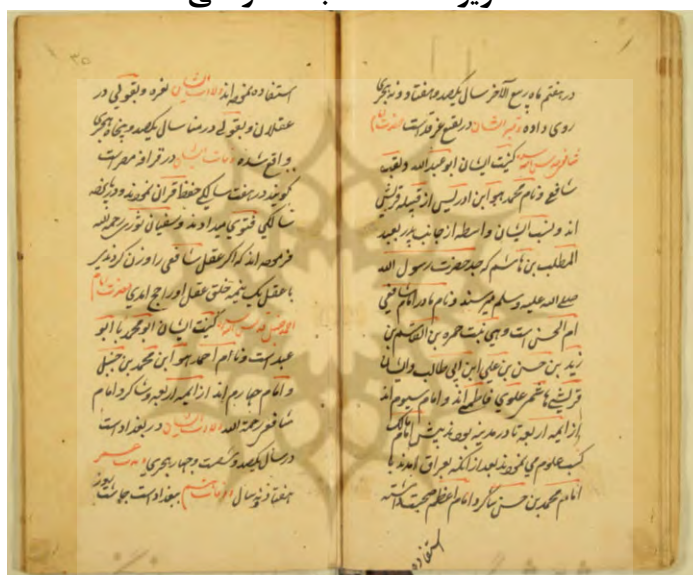 در هفتم ماه ربیع الآخر سال یکصد و هفتاد و نه هجری
روی داده و قبر ایشان در بقیع غرقد است حضرت امام
شافعی قدس سره کنیت ایشان ابو عبدالله و لقب
شافعی و نام محمد هو ابن ادریس از قبیله قریش
اند و نسب ایشان واسطه از جانب پدر بعبد
المطلب بن هاشم که جد حضرت رسول الله
صلی الله علیه و سلم میرسند و نام مادر امام شافعی
ام الحسن است و هی بنت حمزه بن القاسم بن
زید بن حسن بن علی ابن ابی طالب و ایشان
قریشی هاشمی علوی فاطمی اند و امام سیوم اند
از ایمه اربعه تا در مدینه بودند پیش امام مالک
کسب علوم می نمودند بعد از آنکه بعراق آمدند با
امام محمد بن حسن شاگرد امام اعظم صحبت داشته
استفاده
۳۵
استفاده نموده اند ولادت ایشان بغزه و بقولی در
عسقلان و بقولی در منا سال یکصد و پنجاه هجری
واقع شده وفات ایشان در قرافه مصر است
گویند در هفت سالگی حفظ قرآن نمودند و در پانزده
سالگی فتوی میدادند و سفیان ثوری رحمه الله
فرموده اند که اگر عقل شافعی را وزن کردندی
با عقل یک نیمه خلق عقل او راجح آمدی حضرت امام
احمد حنبل قدس سره کنیت ایشان ابو محمد یا ابو
عبد است و نام احمد هو ابن محمد بن حنبل
و امام چهارم اند از ایمه اربعه و شاگرد امام
شافعی رحمه الله ولادت ایشان در بغداد است
در سال یکصد و شصت و چهار هجری مدت عمر
هفتاد و نه سال وفات بغداد است چاشت روز